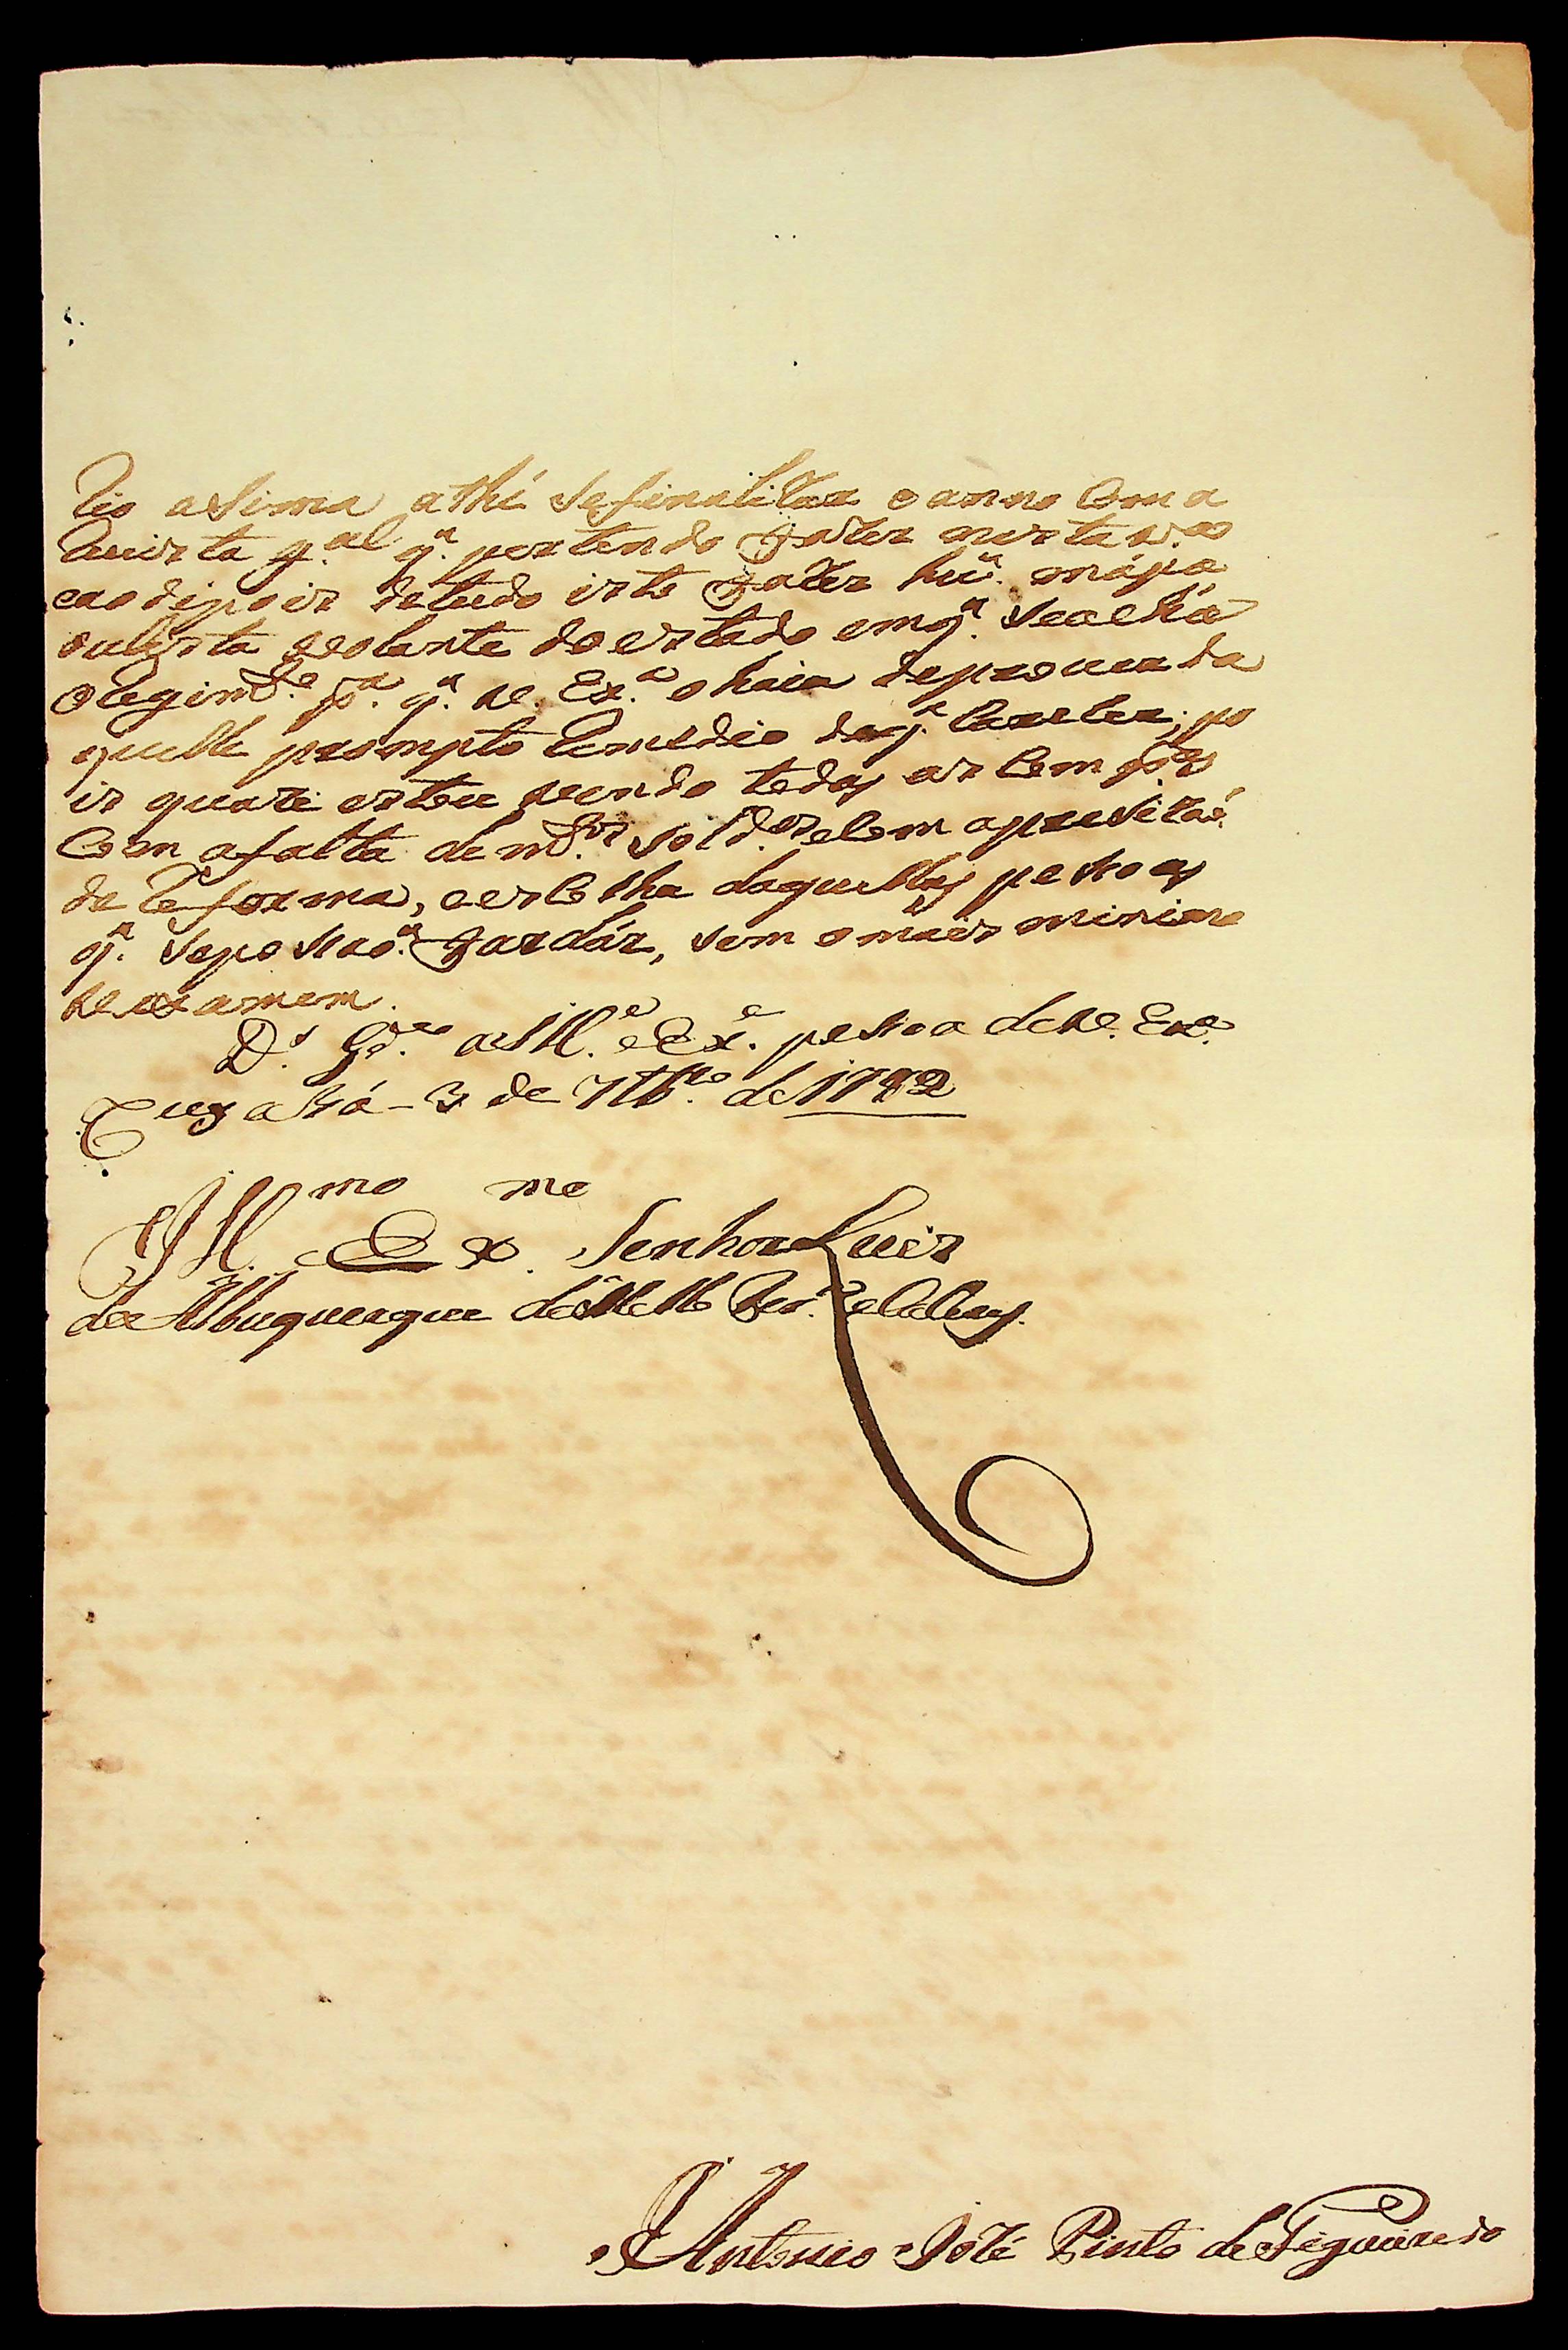 Rio asima athé sefinalizar o anno Com a
Revista g.al q.^ pertendo Fazer nesta v.a
eaodipois detudo isto Fazer hũ. mápa
doestado emq.^ seacha
O Regim.to p.a q.^ V. Ex.a ohaia deprover da
quelle prompto Remedio deq.^ Careser; po
is quazi estou vendo todas as Comp.as
Com afalta de m.tos sold.os eCom apreuizaó
de Reforma, eescolha daquellas pesoas
q.^ seposaó.^ Fardár, sem omais minimo
vexamem.
D.s G.de a Ill.e e Ex.e pesoa de V. Ex.a
Cuyabá - 3 de 7tb.ro de 1782
Ill.mo e Ex.mo Senhor Luis
de Albuquerque de Mello Per.a e Caseres.
Antonio José Pinto de Figueiredo